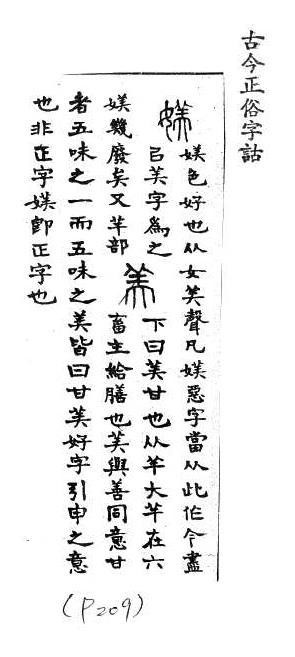 古今正俗字詁
媄
媄色好也从女美聲凡媄惡字當从此作今盡
㠯美字為之
媄幾廢矣又羊部
美
下曰美甘也从羊大羊在六
畜主給膳也美與善同意甘
者五味之一而五味之美皆曰甘美好字引申之意
也非正字媄即正字也
(P209)